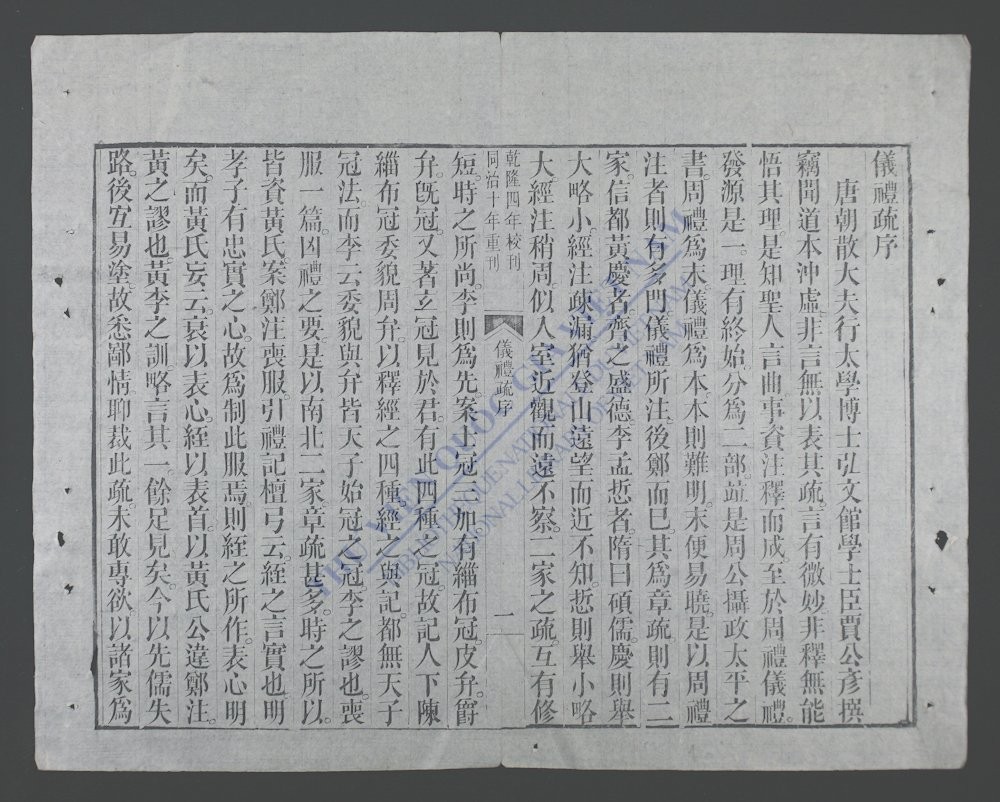 儀禮疏序
唐朝散大夫行太學博士弘文館學士臣賈公彥撰
竊聞道本沖虛。非言無以表其疏。言有微妙。非釋無能
悟其理。是知聖人言曲。事資注釋而成。至於周禮儀禮。
發源是一。理有終始。分爲二部。竝是周公攝政太平之
書。周禮爲末。儀禮爲本。本則難明。末便易曉。是以周禮
注者則有多門。儀禮所注。後鄭而已。其爲章疏則有二
家。信都黃慶者。齊之盛德。李孟悊者。隋曰碩儒。慶則舉
大略小。經注疎漏。猶登山遠望而近不知。悊則舉小略
大。經注稍周。似入室近觀而遠不察。二家之疏。互有修
乾隆四年校刊
同治十年重刊
儀禮疏序
一
短。時之所尚。李則爲先。案士冠三加。有緇布冠。皮弁。爵
弁。旣冠。又著玄冠見於君。有此四種之冠。故記人下陳
緇布冠委貌周弁。以釋經之四種。經之與記都無天子
冠法。而李云委貌與弁皆天子始冠之冠。李之謬也。喪
服一篇。凶禮之要。是以南北二家。章疏甚多。時之所以
皆資黃氏。案鄭注喪服。引禮記檀弓云。絰之言實也。明
孝子有忠實之心。故爲制此服焉。則絰之所作。表心明
矣。而黃氏妄云。衰以表心。絰以表首。以黃氏公違鄭注。
黃之謬也。黃李之訓。略言其一。餘足見矣。今以先儒失
路。後宜易塗。故悉鄙情。聊裁此疏。未敢專欲以諸家爲
THU VIEN QUOC GIA VIET NAM
BIBLIOTHEQUE NATIONALE DU VIETNAM
NATIONAL LIBRARY OF VIETNAM